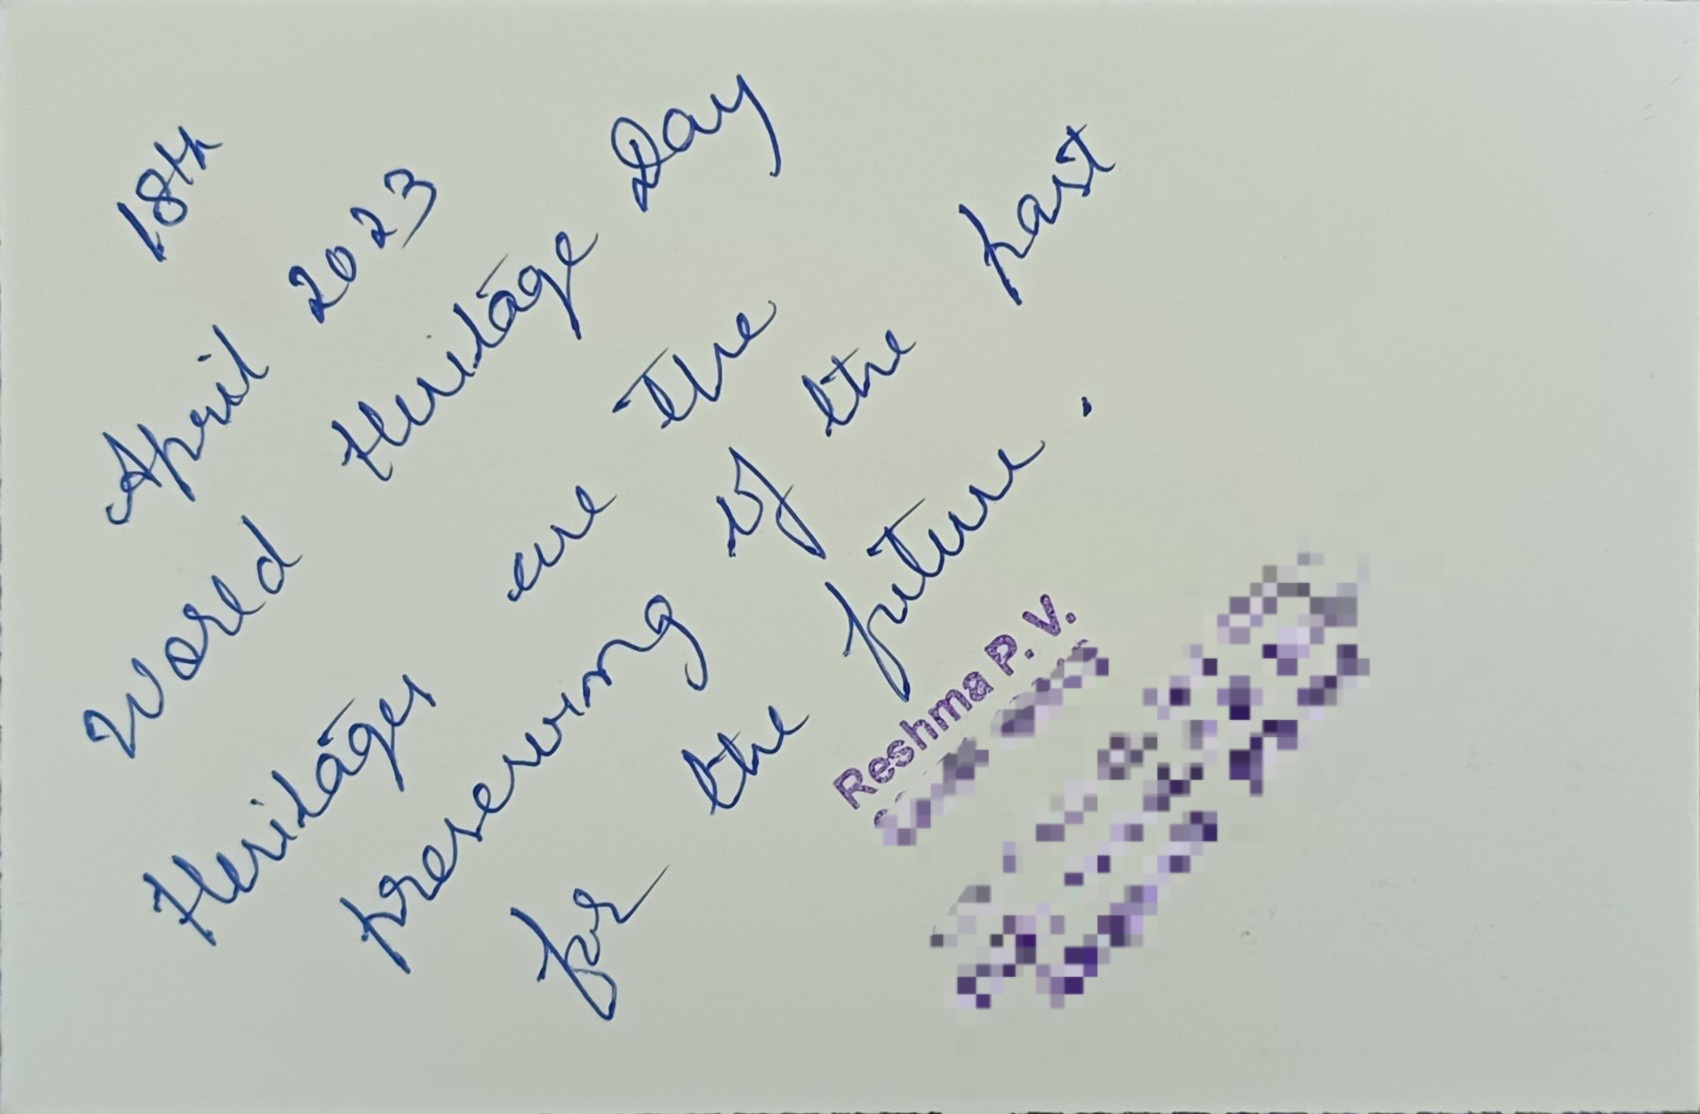 18th
April 2023
World Heritage Day
Heritages are the
preserving of the past
for the future.
Reshma P. V.